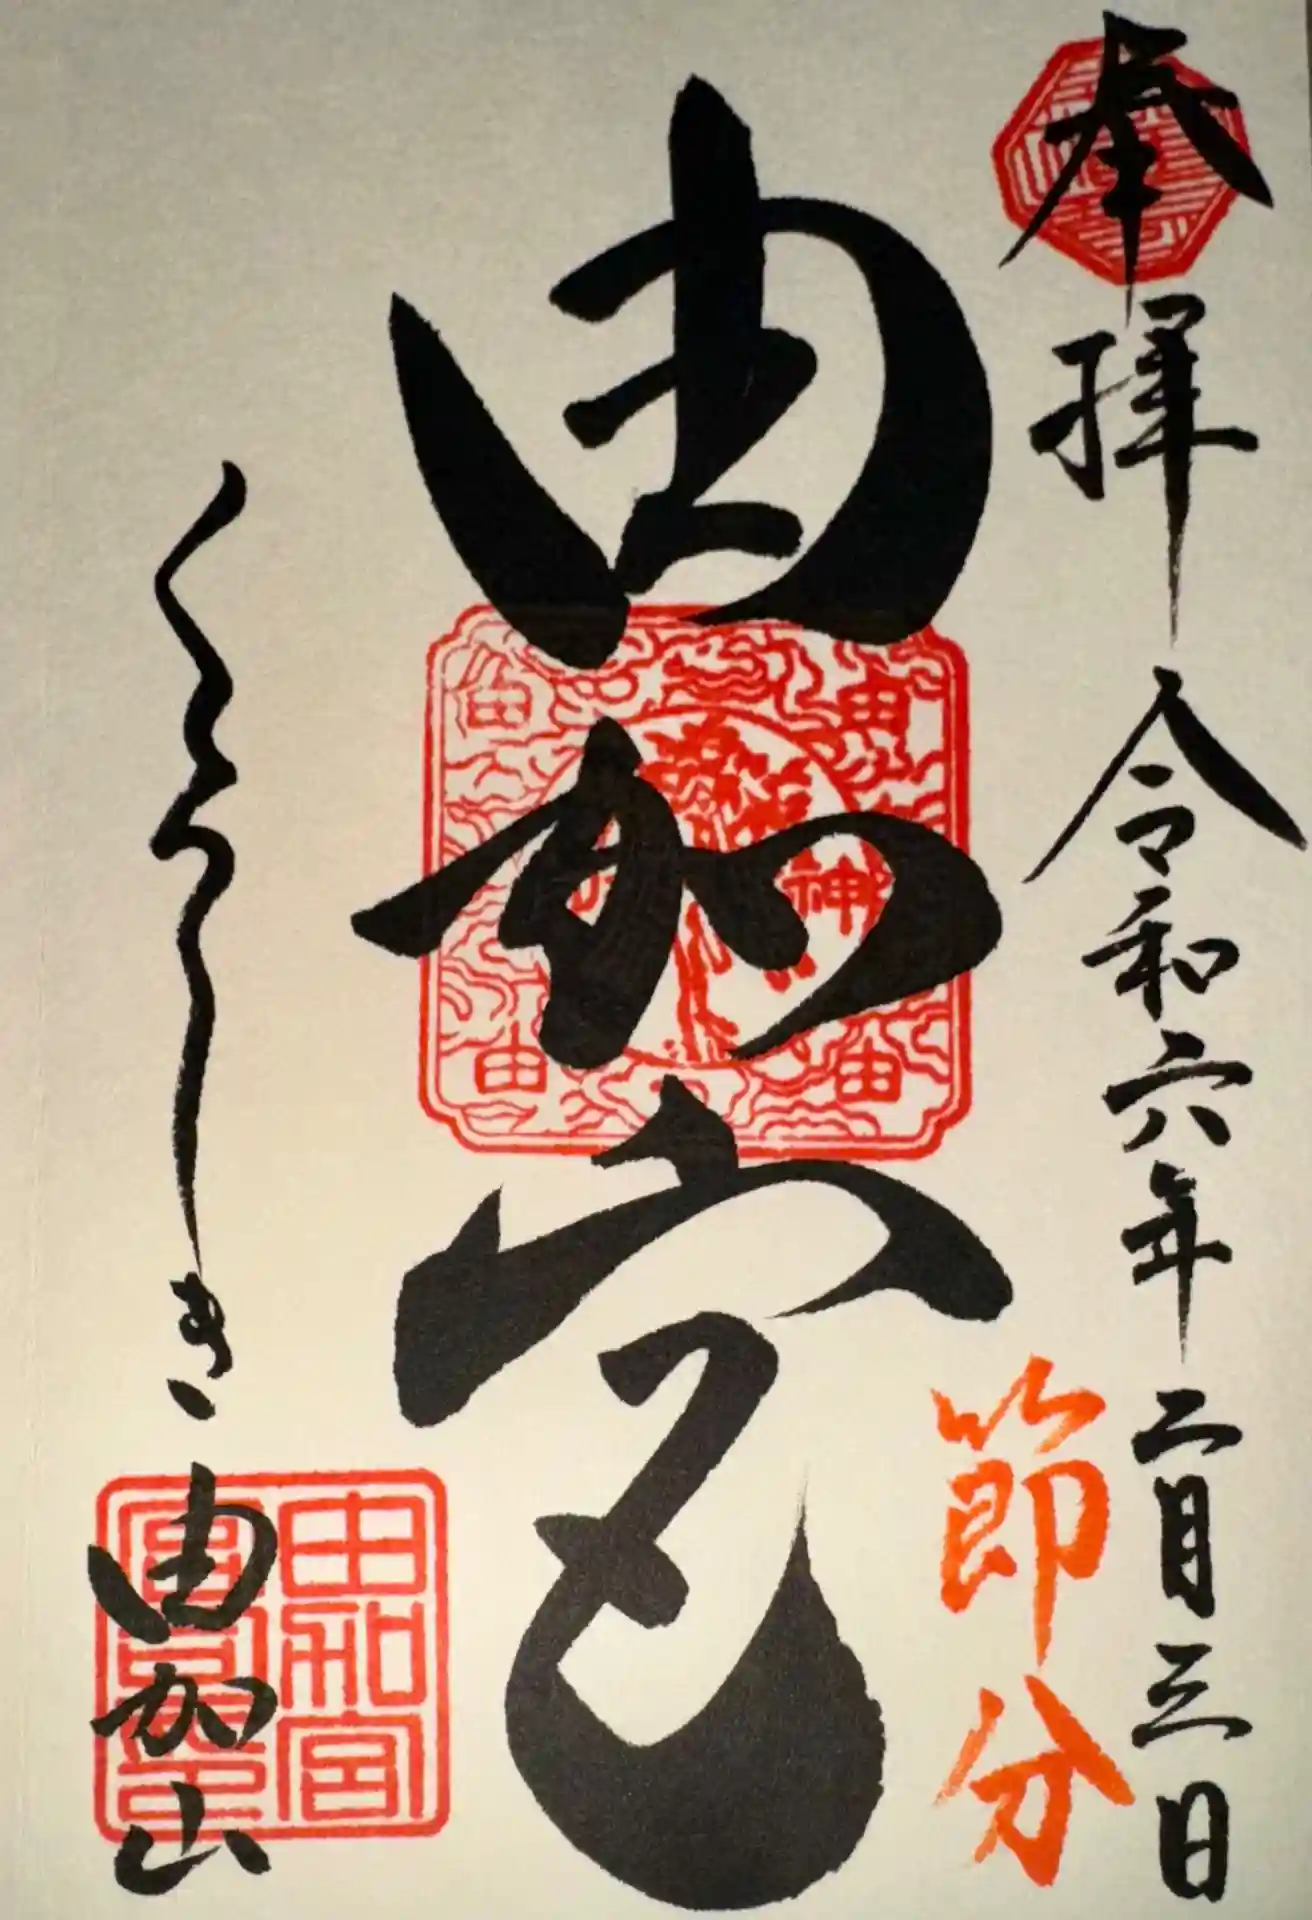 奉拝 令和六年二月三日
節分
由加宮
くらしき 由加山
由
由
由
由
神
由加宮